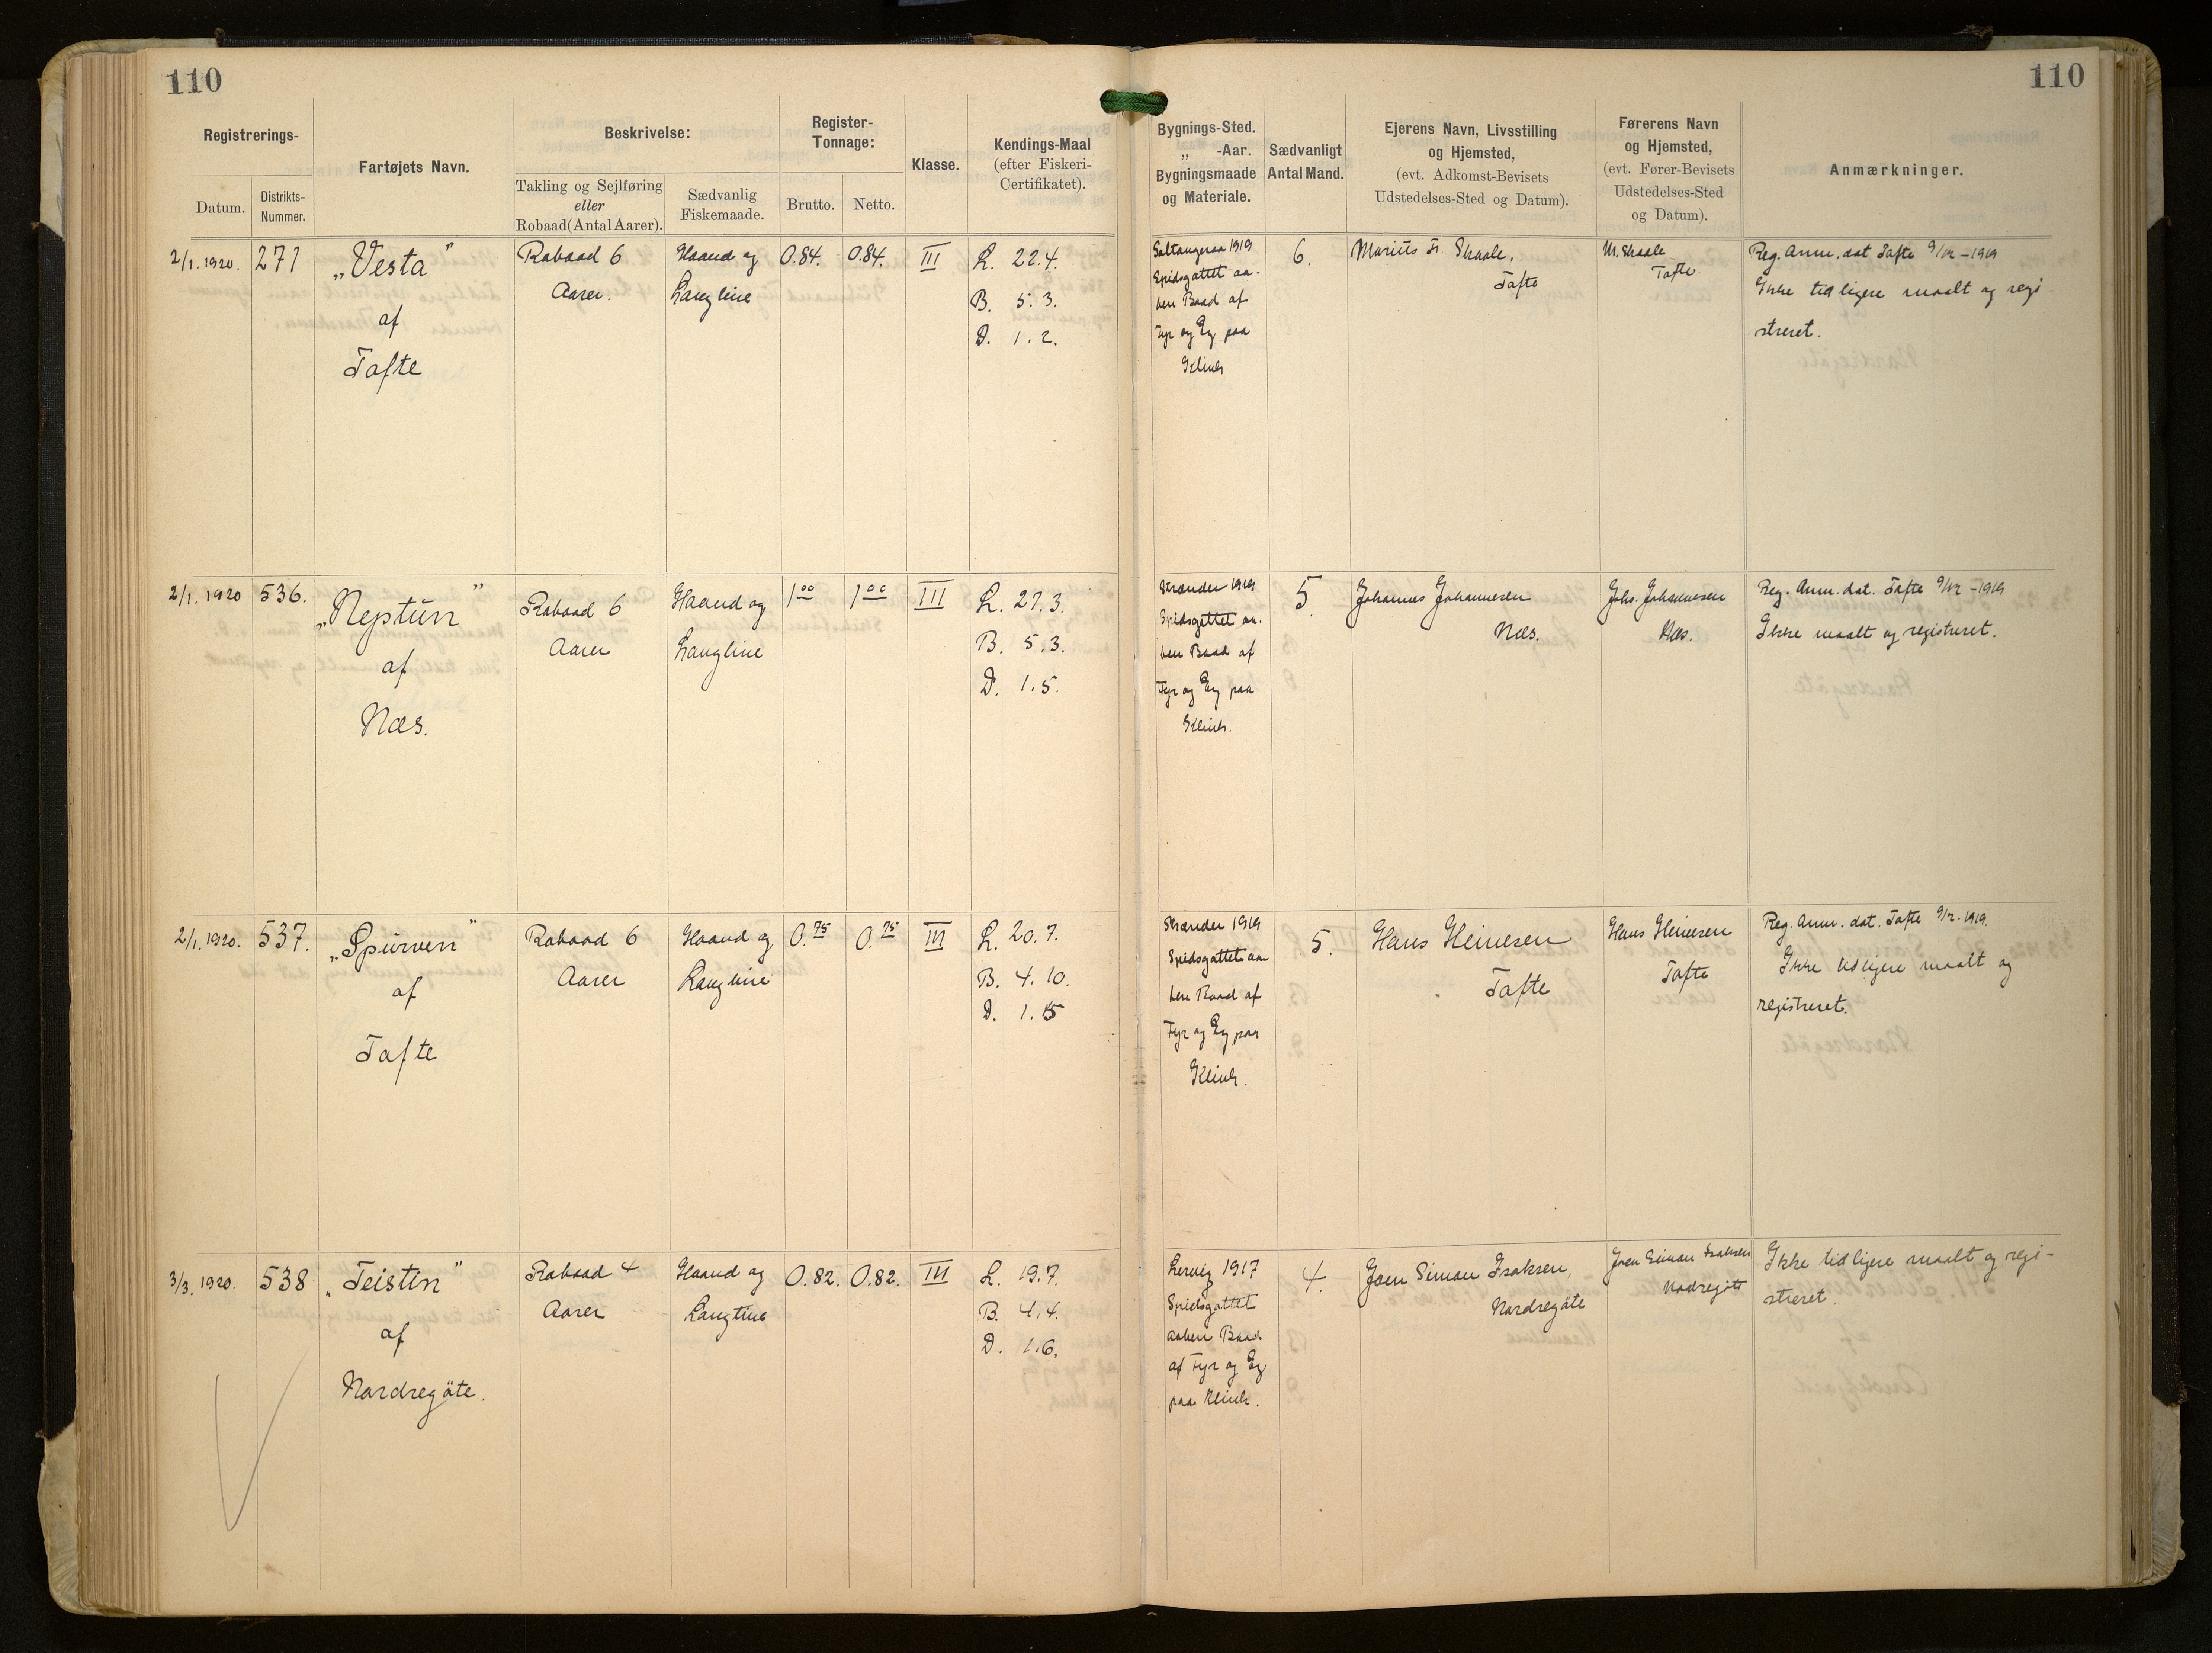 110
110
Registrerings-
Datum.
Distrikts-
Nummer.
Fartøjets Navn.
Beskrivelse:
Takling og Sejlføring
eller
Robaad (Antal Aarer).
Sædvanlig
Fiskemaade.
Register-
Tonnage:
Brutto.
Netto.
Klasse.
Kendings-Maal
(efter Fiskeri-
Certifikatet).
Bygnings-Sted.
„ -Aar.
Bygningsmaade
og Materiale.
Sædvanligt
Antal Mand.
Ejerens Navn, Livsstilling
og Hjemsted,
(evt. Adkomst-Bevisets
Udstedelses-Sted og Datum).
Førerens Navn
og Hjemsted,
(evt. Fører-Bevisets
Udstedelses-Sted
og Datum).
Anmærkninger.
2/1. 1920.
271
„Vesta"
af
Tofte
Robaad 6
Aarer.
Haand og
Langline
0.84.
0.84.
III
L. 22.4.
B. 5.3.
D. 1.2.
Saltangeraa 1919
Spidsgattet aa-
ben Baad af
Fyr og Eg paa
Klink
6.
Marius Fr. Skaale,
Tofte
M. Skaale
Tofte
Reg. Anm. dat Tofte 9/12 - 1919
Ikke tidligere maalt og regi-
streret.
2/1. 1920
536.
„Neptun"
af
Næs.
Robaad 6
Aarer
Haand og
Langline
1 00
1 00
III
L. 27.3.
B. 5.3.
D. 1.5.
Strænder 1919
Spidsgattet aa-
ben Baad af
Fyr og Eg paa
Klink.
5
Johannes Johannesen
Næs.
Johs. Johannesen
Næs.
Reg. Anm. dat. Tofte 9/12 - 1919
Ikke maalt og registreret.
2/1. 1920.
537.
„Spurven"
af
Tofte
Robaad 6
Aarer
Haand og
Langline
0.75
0.75
III
L. 20.7.
B. 4.10.
D. 1.5
Strænder 1919
Spidsgattet aa-
ben Baad af
Fyr og Eg paa
Klink.
5.
Hans Heinesen
Tofte
Hans Heinesen
Tofte
Reg. Anm. dat. Tofte 9/12 - 1919.
Ikke tidligere maalt og
registreret.
3/3. 1920.
538
„Teistin"
af
Nordregöte.
Robaad 4
Aarer
Haand og
Langline
0.82.
0.82.
III
L. 19.7.
B. 4.4.
D. 1.6.
Lervig 1917
Spidsgattet
aaben Baad
af Fyr og Eg
paa Klink.
4.
Joen Simon Isaksen,
Nordregöte
Joen Simon Isaksen
Nodregöte
Ikke tidligere maalt og regi-
streret.